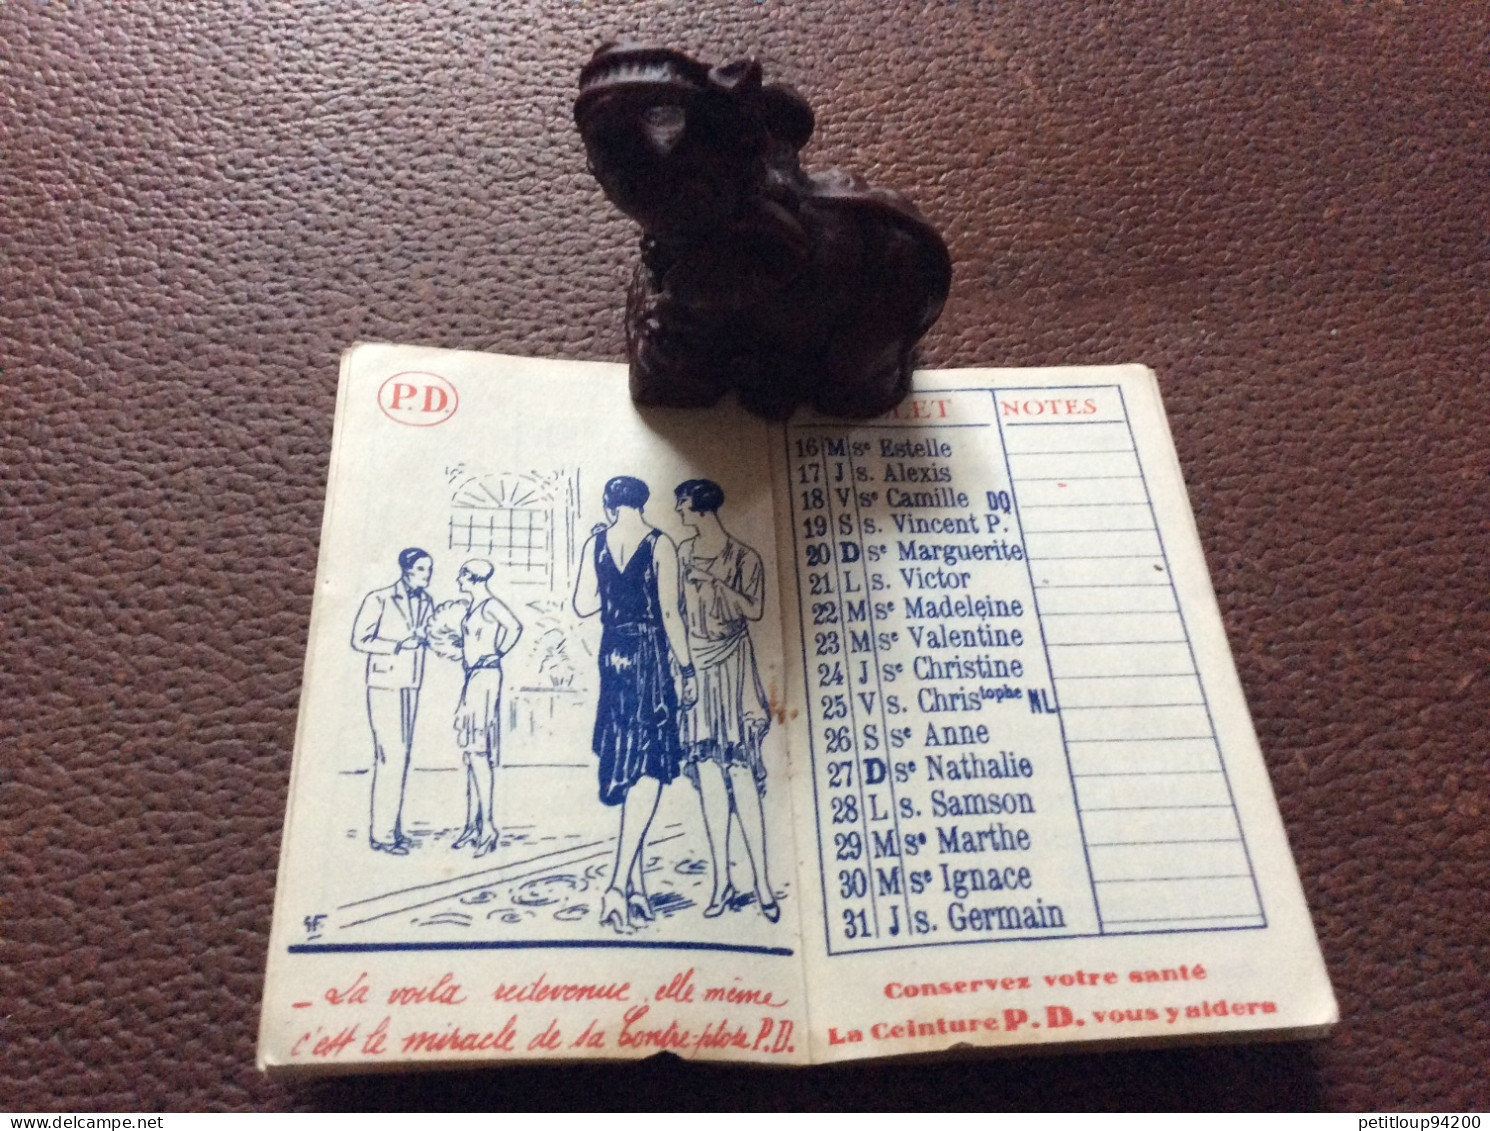 P.D.
LET NOTES
16 M sᵉ Estelle
17 J s. Alexis
18 V sᵉ Camille DQ
19 S s. Vincent P.
20 D sᵉ Marguerite
21 L s. Victor
22 M sᵉ Madeleine
23 M sᵉ Valentine
24 J sᵉ Christine
25 V s. Christophe NL
26 S sᵉ Anne
27 D sᵉ Nathalie
28 L s. Samson
29 M sᵉ Marthe
30 M sᵉ Ignace
31 J s. Germain
_ La voila redevenue elle même
c'est le miracle de sa Contre-ptose P.D.
Conservez votre santé
La Ceinture P.D. vous y aidera
petitloup94200